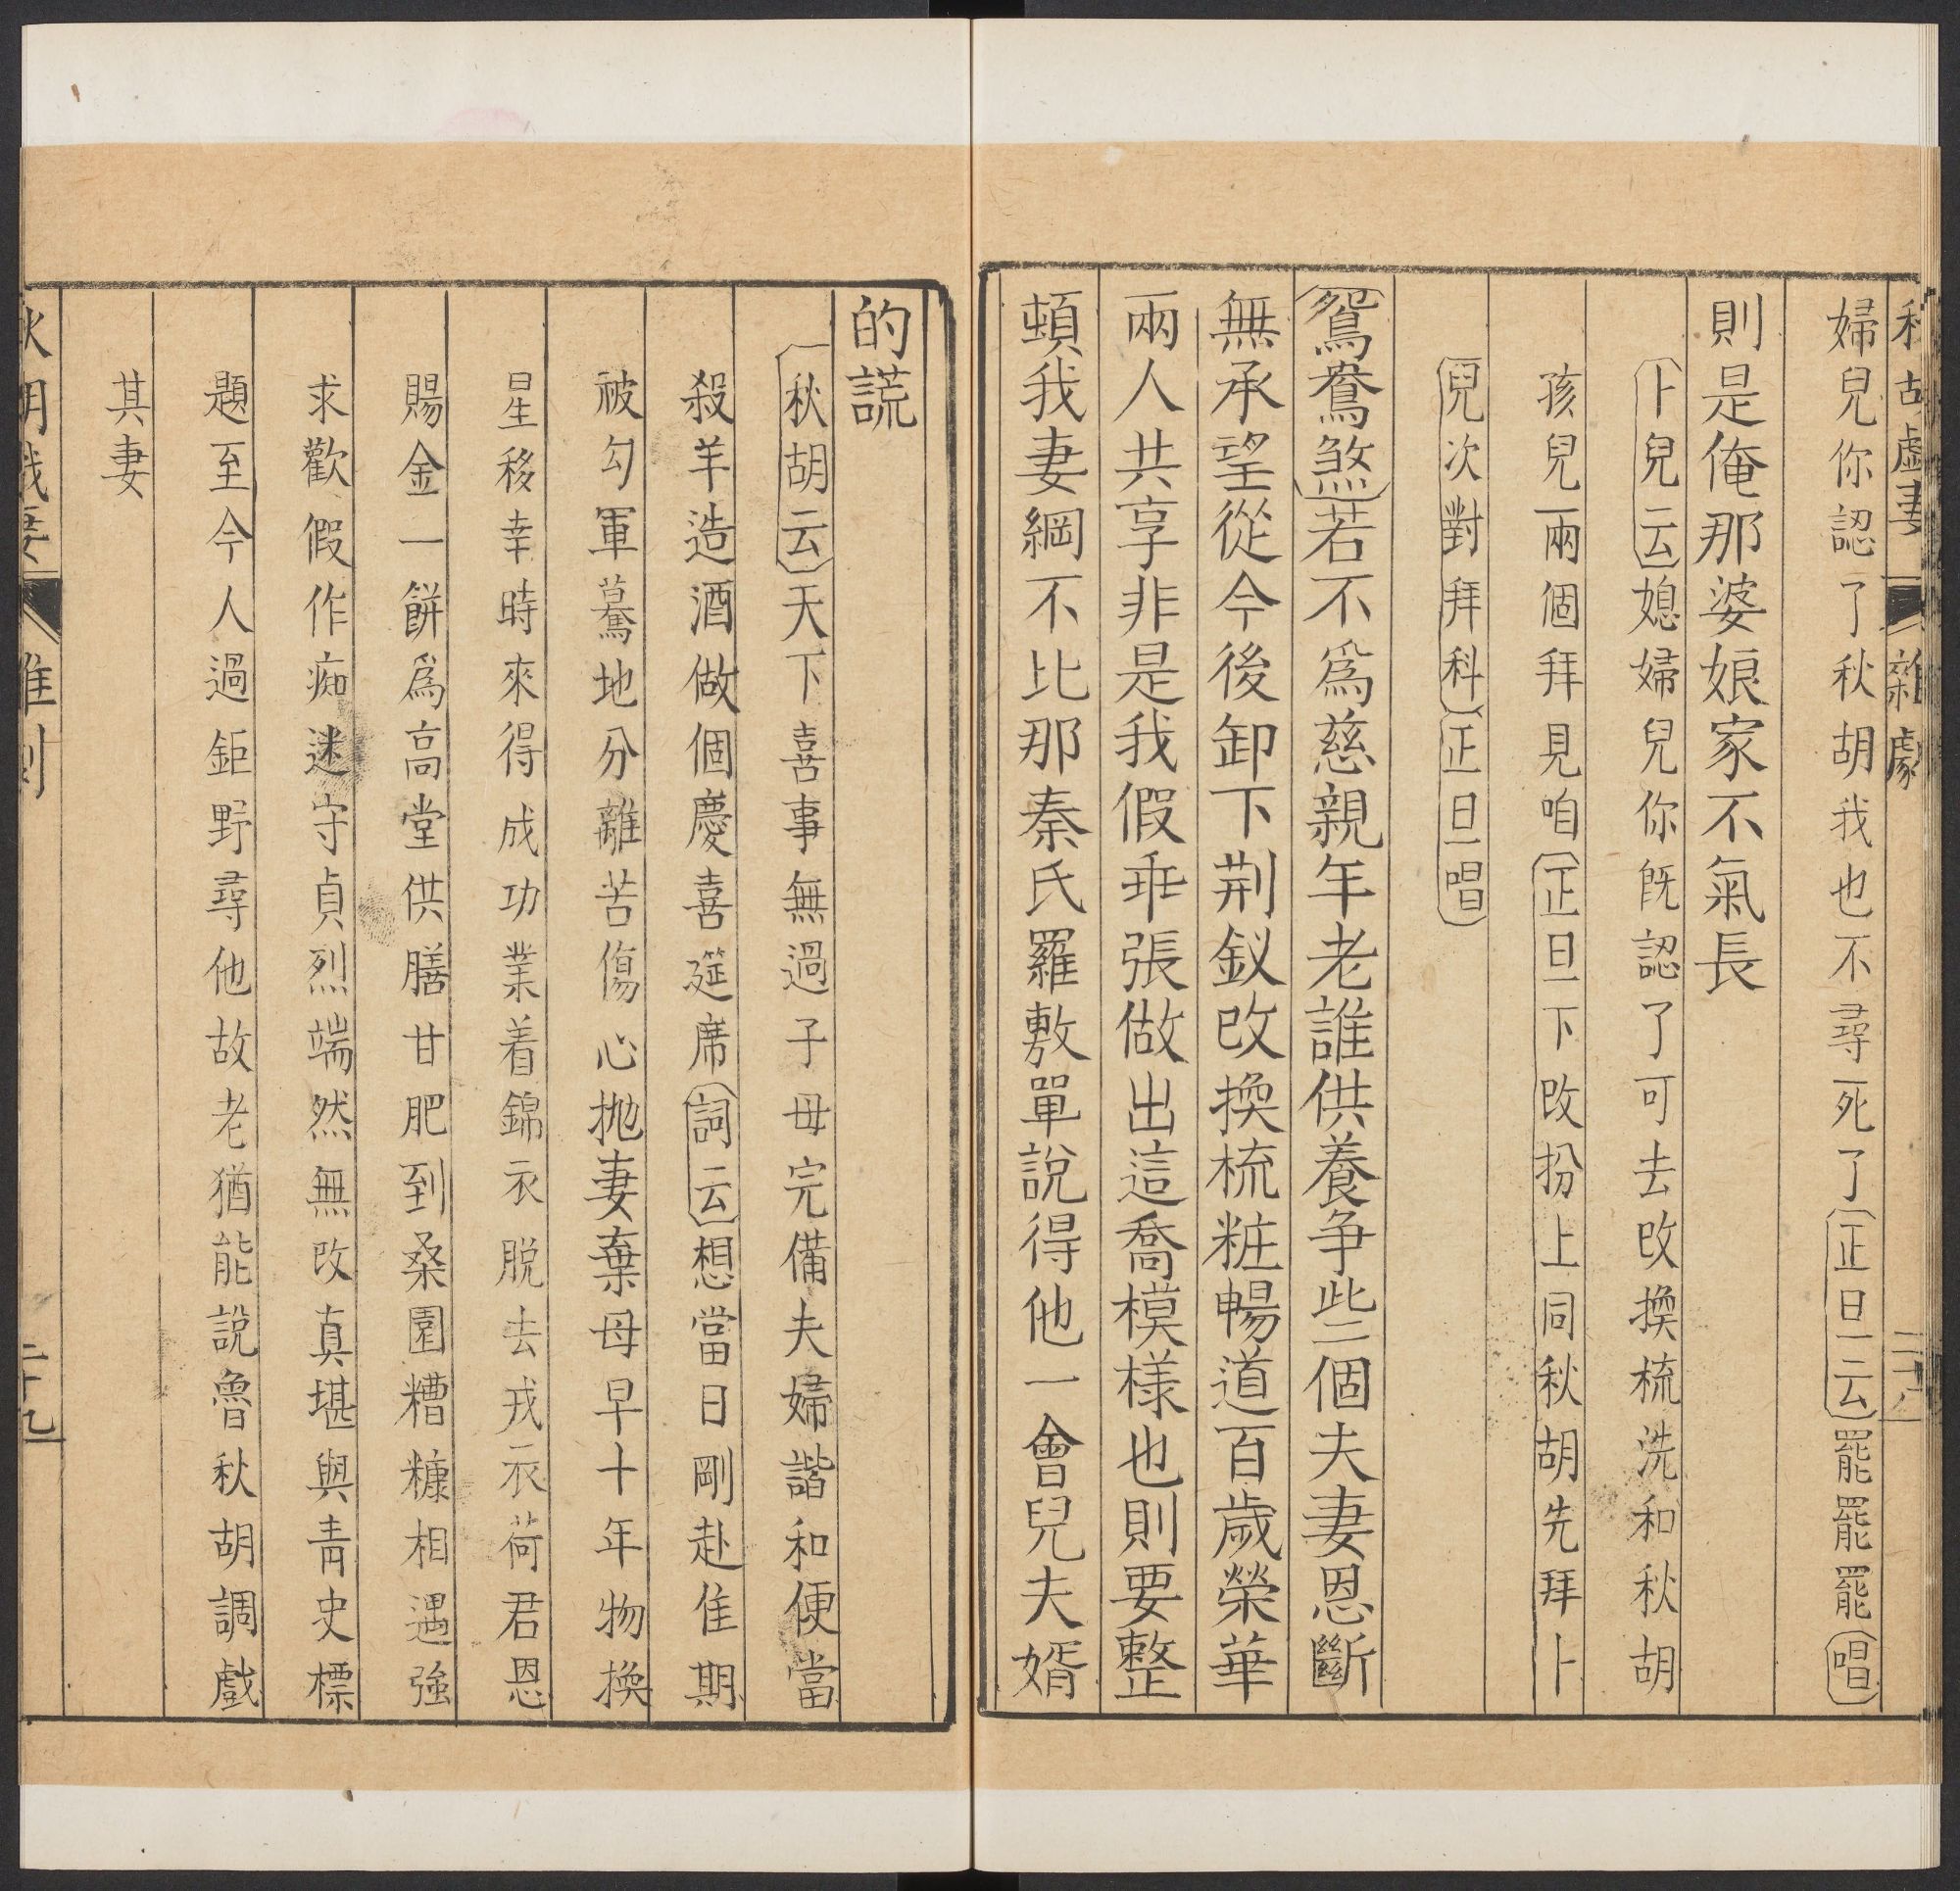 秋胡戲妻 雜劇 二十八
婦兒你認了秋胡我也不尋死了正旦云罷罷罷唱
則是俺那婆娘家不氣長
卜兒云媳婦兒你旣認了可去改換梳洗和秋胡
孩兒兩個拜見咱正旦下改扮上同秋胡先拜卜
兒次對拜科正旦唱
鴛鴦煞若不爲慈親年老誰供養争些個夫妻恩斷
無承望從今後卸下荆釵改換梳粧暢道百歲榮華
兩人共享非是我假乖張做出這喬模樣也則要整
頓我妻綱不比那秦氏羅敷單說得他一會兒夫婿
的謊
秋胡云天下喜事無過子母完備夫婦諧和便當
殺羊造酒做個慶喜筵席詞云想當日剛赴佳期
被勾軍驀地分離苦傷心抛妻棄母早十年物換
星移幸時來得成功業着錦衣脱去戎衣荷君恩
賜金一餅爲高堂供膳甘肥到桑園糟糠相遇強
求歡假作痴迷守貞烈端然無改真堪與青史標
題至今人過鉅野尋他故老猶能説魯秋胡調戲
其妻
秋胡戲妻 雜劇 二十九